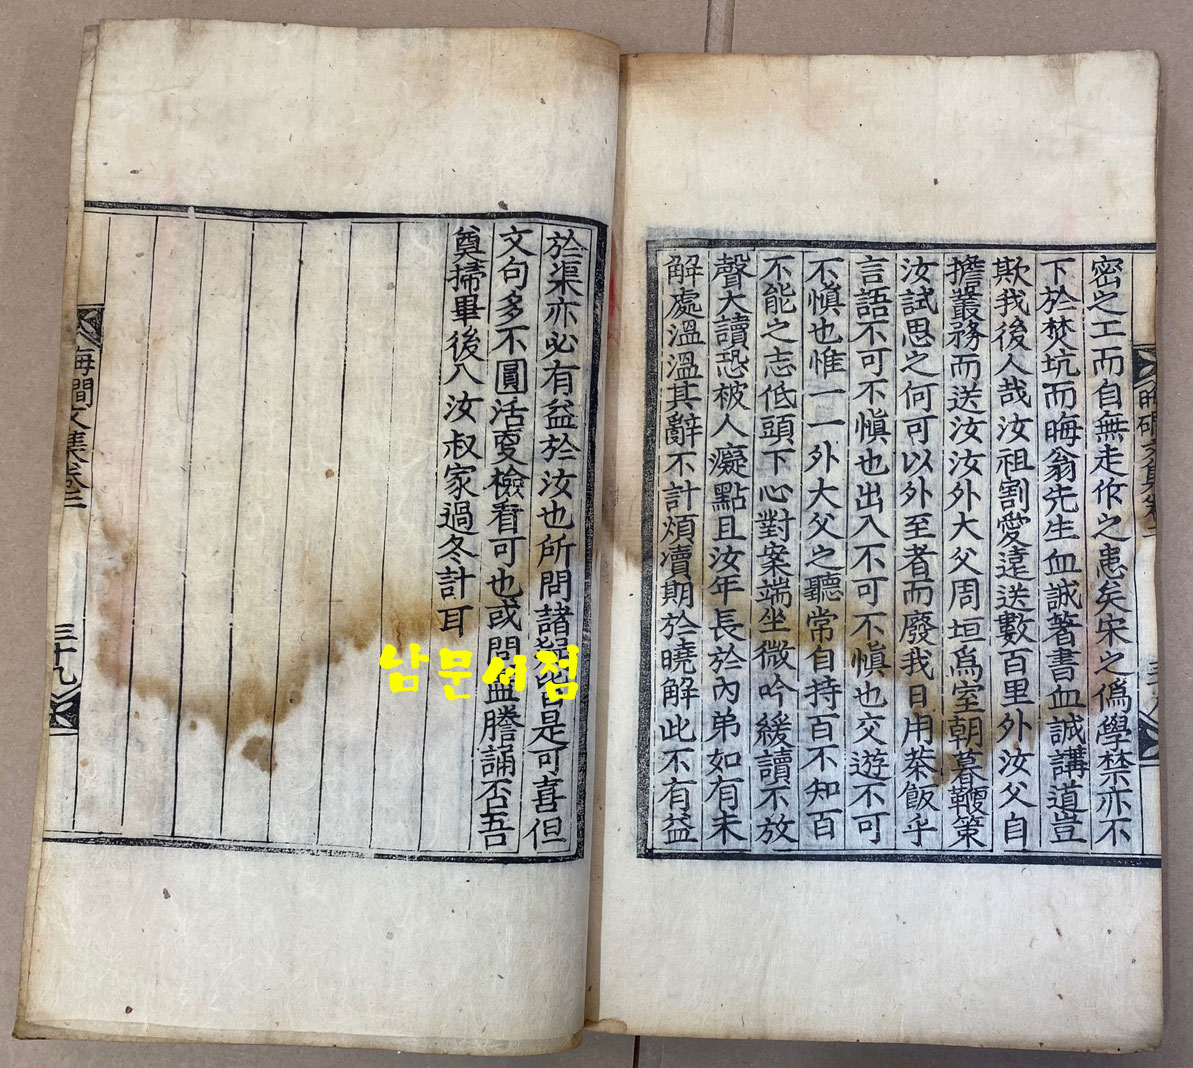 密之工而自無走作之患矣宋之僞學禁亦不
下於焚坑而晦翁先生血誠著書血誠講道豈
欺我後人哉汝祖割愛遠送數百里外汝父自
擔叢務而送汝汝外大父周垣爲室朝暮鞭策
汝試思之何可以外至者而廢我日用茶飯乎
言語不可不愼也出入不可不愼也交遊不可
不愼也惟一一外大父之聽常自持百不知百
不能之志低頭下心對案端坐微吟緩讀不放
聲大讀恐被人癡點且汝年長於內弟如有未
解處溫溫其辭不計煩瀆期於曉解此不有益
於渠亦必有益於汝也所問諸皆是可喜但
文句多不圓活更檢看可也或問謄誦否吾
奠掃畢後入汝叔家過冬計耳
文集卷二
三十九
남문서점